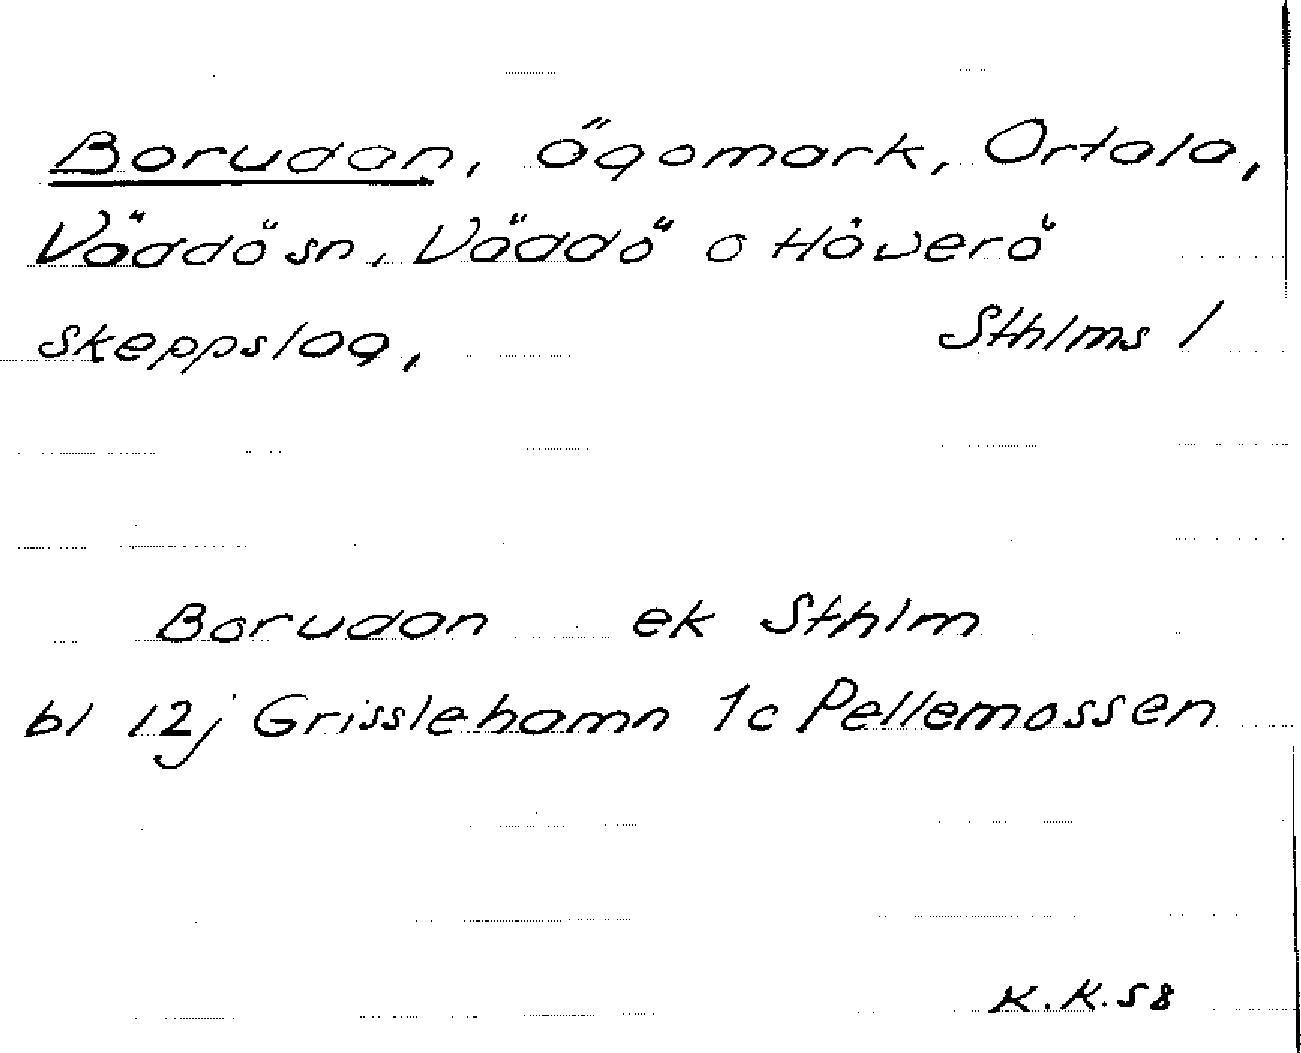 Borudan, ägomark, Ortala,
Väddö sn, Väddö o Häverö
skeppslag, Sthlms l
Borudan ek Sthlm
bl 12j Grisslehamn 1c Pellemossen
K.K. 58